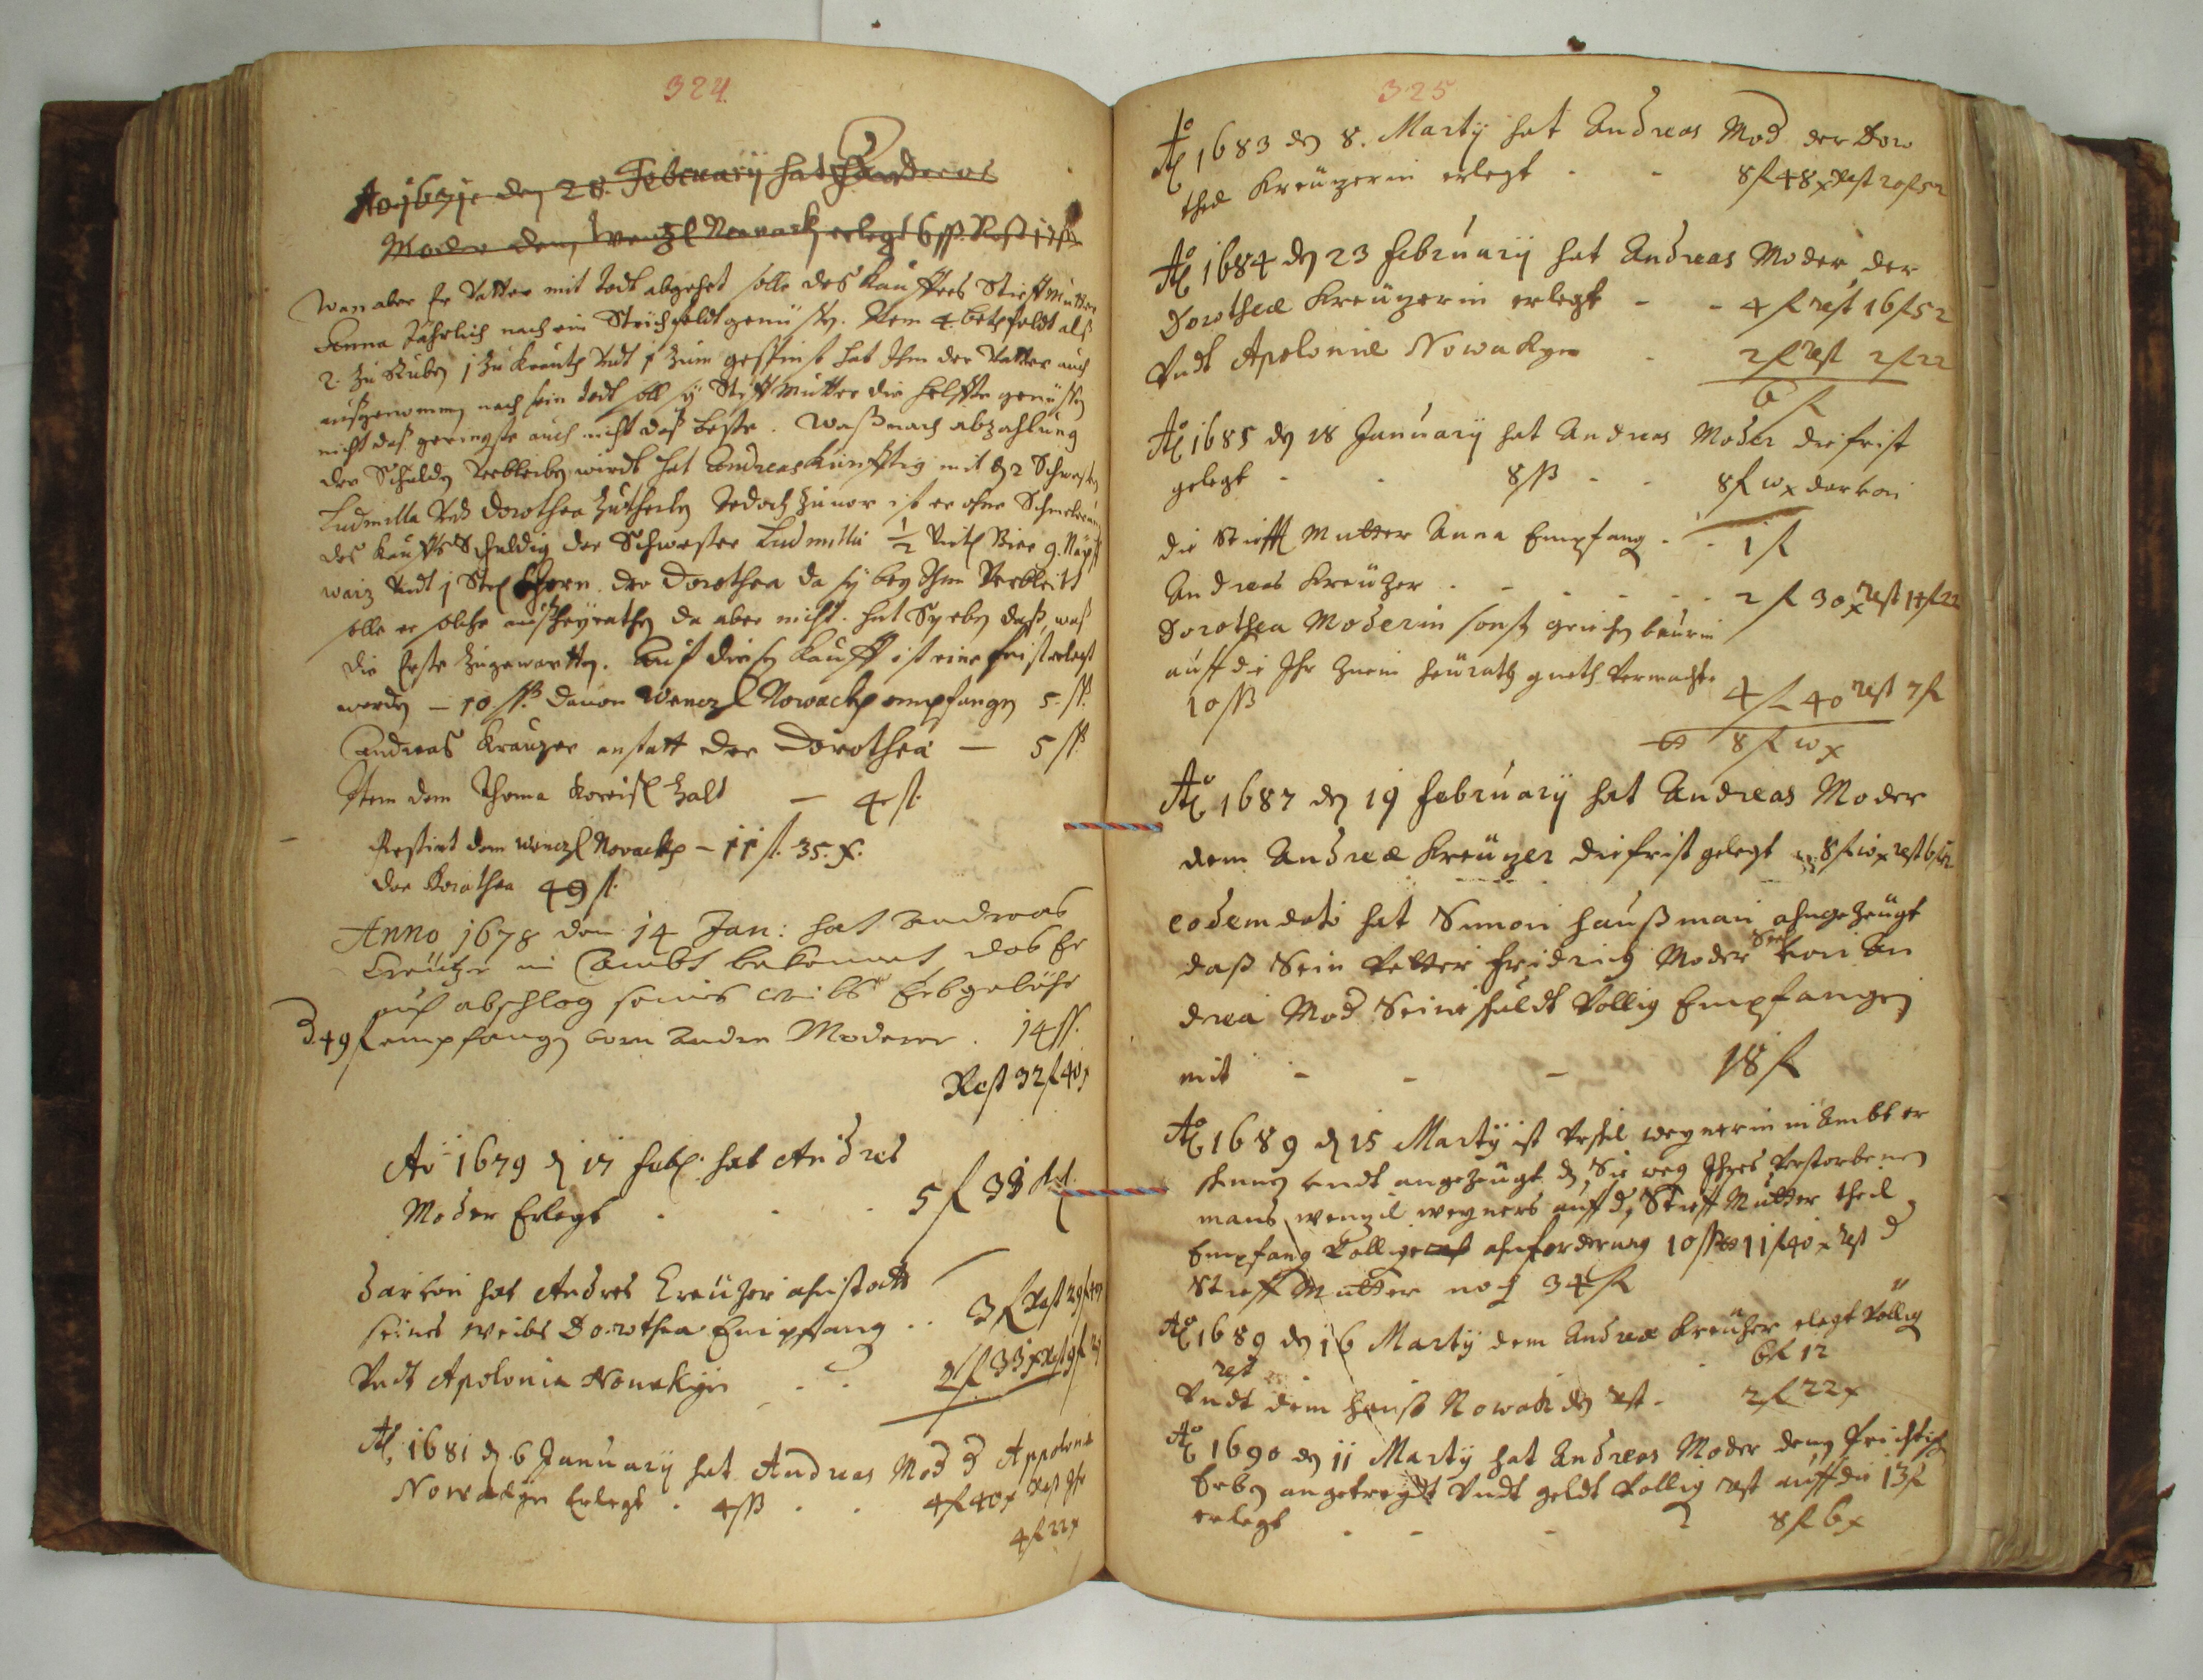 324
Ao 1671 den 28. February hat Andreas
Moder dem Wentzl Nowack erlegt 6 ß. Rest 17 ß
Wan aber Er Vatter mit todt abgehet solle des Kauffers Stieff Mutter
Anna Jährlich nach ein Strich feldt genüssen. Item 4. beth feldt alß
2. zu Ruben 1 zu Krauth Vndt 1 zum gespinst hat Ihm der Vatter auch
außgenommen nach sein todt soll sÿ Stieff Mutter die helffte genüssen
nicht daß geringste auch nicht daß Beste. Waß nach abzahlung
der Schulden Verbleiben wirdt hat Andreas Künfftig mit den 2 Schwestern
Ludmilla Vnd Dorothea Zutheilen Jedoch zuvor ist er ohne Schmelerung
des Kauffs Schuldig der Schwester Ludmilla ½ Viertl Bier 9. Näpff
waiz Vndt 1 Strl Khorn. der Dorothea da sÿ bey Ihm Verbleibt
solle er solche außheÿrathen da aber nicht. hat Sy eben daß, waß
die Erste zugewarten. Auf diesen Kauff ist eine frist erlegt
worden – 10 ß. davon Wenczl Nowackh empfangen 5. ß.
Andreas Kreuzer anstatt der Dorothea — 5 ß
Item dem Thoma Koreisl zalt — 4 fl.
Restirt dem Wenczl Novackh – 11 fl. 35. x.
der Dorothea 49 fl.
Anno 1678 den 14 Jan: hat Andreas
Creützer im Ambt bekennet, das Er
auf abschlag seines weibs Erbgelder
d. 49 f empfangen vom Andre Moderer. 14 ß.
Rest 32 f 40 x
Ao 1679 den 17 feb: hat Andres
Moder Erlegt . . . 5 f 33
darvon hat Andres Creüzer ahnstadt
seines Weibs Dorothea Empfang .. 3 f Rest 29 f 40
Vndt Apolonia Nowakin . . 2 f 33 x Rest 9 f 2
Ao 1681 den 6 January hat Andreas Mod d Appolonia
Nowakin Erlegt . 4 ß . . 4 f 40 x Rest Ihr
4 f 22 x
325
Ao 1683 den 8. Marty hat Andreas Mod der Doro
thea Kreützerin erlegt - - 8 f 48 x Rest 20 f 52
Ao 1684 den 23 february hat Andreas Moder der
Dorotheæ Kreüzerin erlegt - - 4 f rest 16 f 52
Vndt Apoloniæ Nowakyn - 2 f rest 2 f 22
6 f
Ao 1685 den 18 January hat Andreas Moder die frist
gelegt - - 8 ß - - 8 f 10 x darvon
die Stieff Mutter Anna Empfang . - 1 f
Andreas Kreüzer . - - - - 2 f 30 x rest 14 f 22
Dorothea Moderin sonst
auff die Ihr Zum heürath gueth Vermachte
10 ß 4 f 40 rest 7 f
8 f 10 x
Ao 1687 den 19 february hat Andreas Moder
dem Andreæ Kreüzer die frist gelegt 8 f 10 x rest 6 f 12
eodem dato hat Simon Haußman ahngezeügt
daß Sein Vetter Fridrich Moder Seel Von An
drea Mod Seine schuldt Völlig Empfangen
mit - - - 18 f
Ao 1689 den 15 Marty ist Wegnerin in Ambt er
schinen vndt angezeügt dz Sie weg Ihres Verstorbenen
mans wenzil wegners auff dz Stieff Mutter theil
Empfang Völlige ahnforderung 10 ß 11 f 40 x rest d
Stieff Mutter noch 34 f
Ao 1689 den 16 Marty dem Andreæ Kreüzer elegt Völlig
rest 6 f 12
Vndt dem Hanß Nowak den rest - 2 f 22 x
Ao 1690 den 11 Marty hat Andreas Moder denen
Erben angetreydt Vndt geldt Völlig rest auff die 13 f
erlegt - - - 8 f 6 x